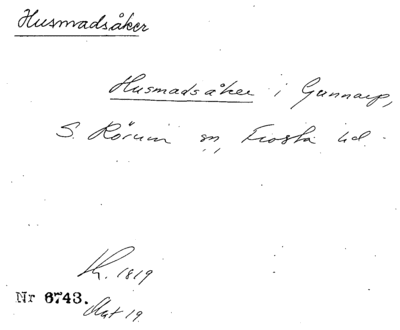 Husmadsåker
Husmadsåker i Gunnarp,
S. Rörum sn, Frosta hd.
Kh. 1819
Nr 6743.
Akt 19